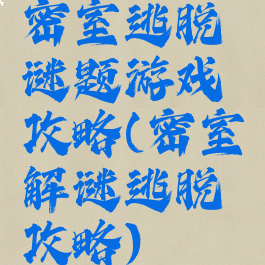 密室逃脱
谜题游戏
攻略(密室
解谜逃脱
攻略)